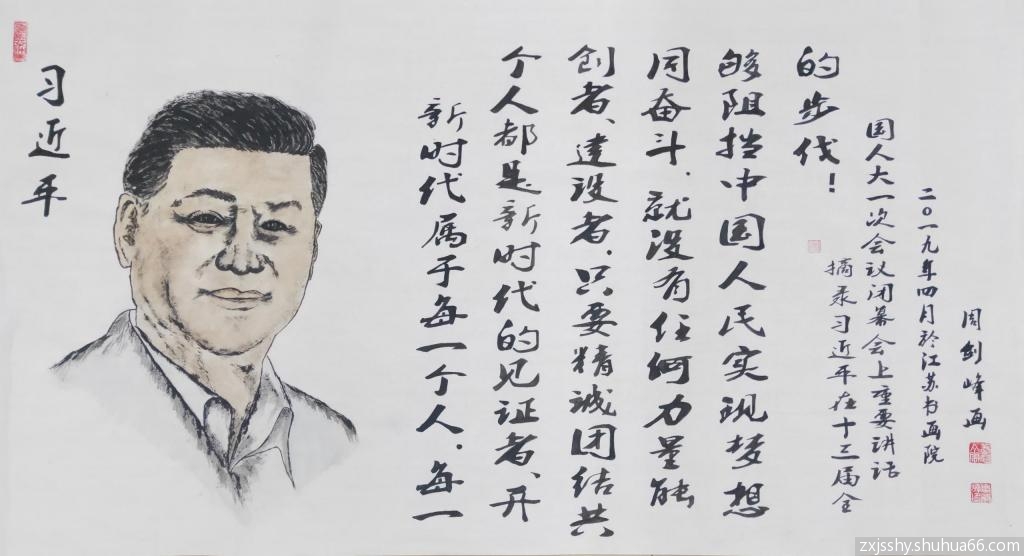 习近平
新时代属于每一个人,每一
个人都是新时代的见证者、开
创者、建设者,只要精诚团结共
同奋斗、就没有任何力量能
够阻挡中国人民实现梦想
的步伐!
摘录习近平在十三届全
国人大一次会议闭幕会上重要讲话
二〇一九年四月於江苏书画院
周剑峰画
zxjsshy.shuhua66.com